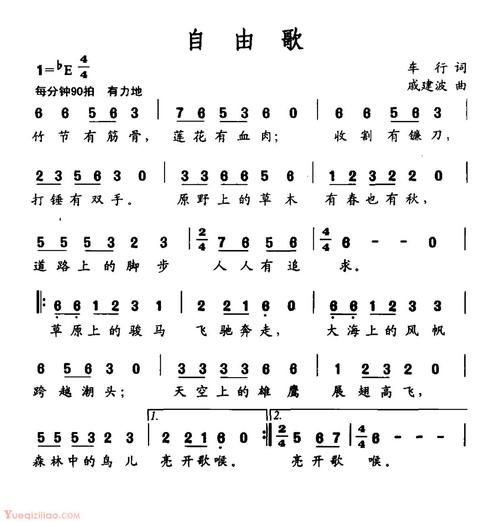 自由歌
1=♭E 4/4
车行 词
每分钟90拍 有力地
戚建波 曲
6 6 5 6 3 | 7 6 5 3 6 0 | 6 6 5 6 3
竹节有筋骨，莲花有血肉；收割有镰刀，
2 3 5 6 3 0 | 3 3 3 6 6 5 6 | 1 2 3 2 1 0
打锤有双手。原野上的草木 有春也有秋，
5 5 5 3 2 3 | 2/4 7 6 5 6 | 4/4 6 - - 0
道路上的脚步 人人有追求。
6 6 1 2 3 | 1 2 2 1 6 0 | 6 6 1 2 3
草原上的骏马 飞驰奔走，大海上的风帆
6 5 6 3 0 | 6 6 1 2 3 | 2 3 2 1 0
跨越潮头；天空上的雄鹰 展翅高飞，
1. 2.
5 5 5 5 3 2 3 | 2 2 1 6 0 :| 2/4 5 6 7 | 4/4 6 - - 0
森林中的鸟儿 亮开歌喉。亮开歌喉。
Yueqiziliao.com